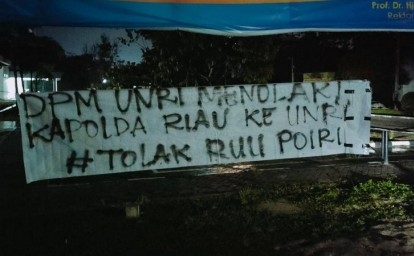 Prof. Dr. Hj
DPM UNRI MENOLAK!
KAPOLDA RIAU KE UNRI
# TOLAK RUU POLRI